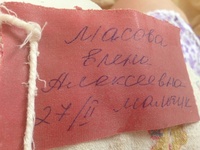 Масова
Елена
Алексеевна
27/II мальчик